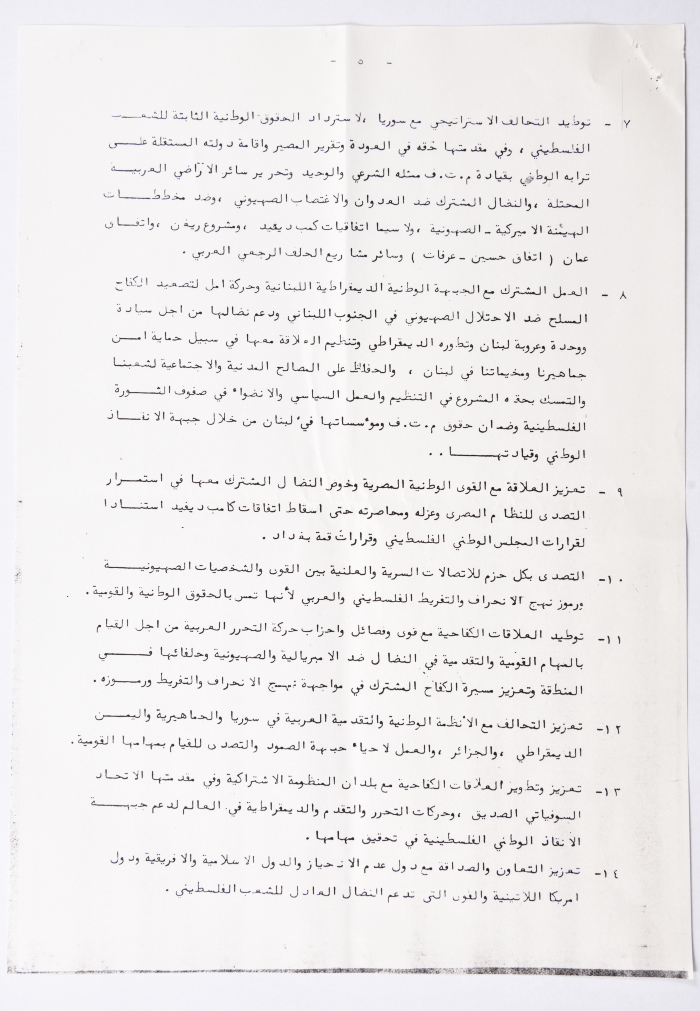 - ٥ -
٧ - توطيد التحالف الاستراتيجي مع سوريا ،لاسترداد الحقوق الوطنية الثابتة للشعب
الفلسطيني ، وفي مقدمتها حقه في العودة وتقرير المصير واقامة دولته المستقلة على
ترابه الوطني بقيادة م.ت.ف ممثله الشرعي والوحيد وتحرير سائر الاراضي العربية
المحتلة ،والنضال المشترك ضد العدوان والاغتصاب الصهيوني ،وضد مخططات
الهيمنة الاميركية - الصهونية ،ولا سيما اتفاقيات كمب ديفيد ،ومشروع ريغن ،واتفاق
عمان ( اتفاق حسين - عرفات ) وسائر مشاريع الحلف الرجعي العربي .
٨ - العمل المشترك مع الجبهة الوطنية الديمقراطية اللبنانية وحركة امل لتصعيد الكفاح
المسلح ضد الاحتلال الصهيوني في الجنوب اللبناني ودعم نضالها من اجل سيادة
ووحدة وعروبة لبنان وتطوره الديمقراطي وتنظيم العلاقة معها في سبيل حماية امن
جماهيرنا ومخيماتنا في لبنان ، والحفاظ على المصالح المدنية والاجتماعية لشعبنا
والتمسك بحقه المشروع في التنظيم والعمل السياسي والانضواء في صفوف الثورة
الفلسطينية وضمان حقوق م.ت.ف وموءسساتها في لبنان من خلال جبهة الانقاذ
الوطني وقيادتها ..
٩ - تعزيز العلاقة مع القوى الوطنية المصرية وخوض النضال المشترك معها في استمرار
التصدى للنظام المصرى وعزله ومحاصرته حتى اسقاط اتفاقات كامب ديفيد استنادا
لقرارات المجلس الوطني الفلسطيني وقرارات قمة بغداد .
١٠- التصدى بكل حزم للاتصالات السرية والعلنية بين القوى والشخصيات الصهيونية
ورموز نهج الانحراف والتفريط الفلسطيني والعربي لأنها تمس بالحقوق الوطنية والقومية.
١١- توطيد العلاقات الكفاحية مع قوى وفصائل واحزاب حركة التحرر العربية من اجل القيام
بالمهام القومية والتقدمية في النضال ضد الامبريالية والصهيونية وحلفائها في
المنطقة وتعزيز مسيرة الكفاح المشترك في مواجهة نهج الانحراف والتفريط ورموزه.
١٢- تعزيز التحالف مع الأنظمة الوطنية والتقدمية العربية في سوريا والجماهيرية واليمن
الديمقراطي ،والجزائر ،والعمل لاحياء جبهة الصمود والتصدى للقيام بمهامها القومية.
١٣- تعزيز وتطوير العلاقات الكفاحية مع بلدان المنظومة الاشتراكية وفي مقدمتها الاتحاد
السوفياتي الصديق ،وحركات التحرر والتقدم والديمقراطية في العالم لدعم جبهة
الانقاذ الوطني الفلسطينية في تحقيق مهامها.
١٤- تعزيز التعاون والصداقة مع دول عدم الانحياز والدول الاسلامية والافريقية ودول
امريكا اللاتينية والقوى التي تدعم النضال العادل للشعب الفلسطيني .